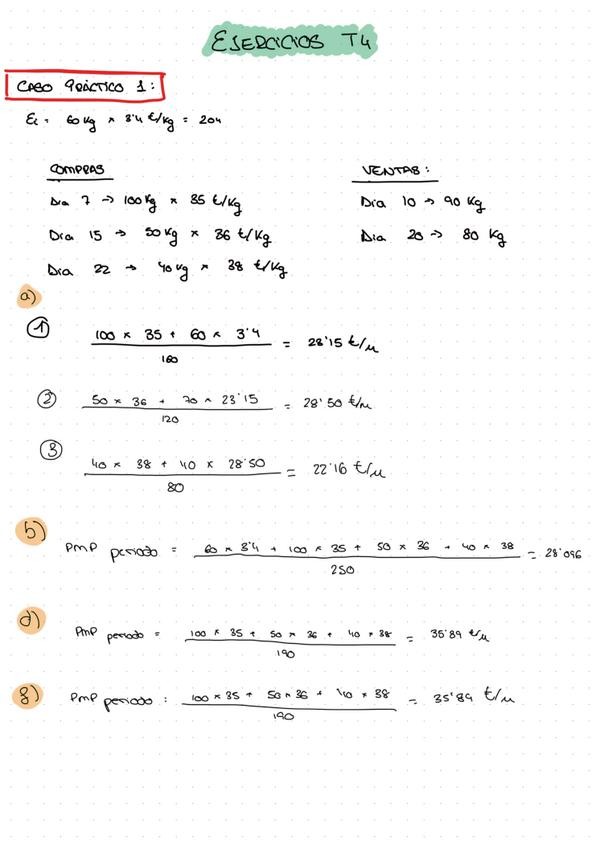 EJERCICIOS T4
CASO PRÁCTICO 1:
Ei = 60 kg × 3'4 €/kg = 204
COMPRAS
VENTAS:
Dia 7 → 100 kg × 35 €/kg
Dia 10 → 90 kg
Dia 15 → 50 kg × 36 €/kg
Dia 20 → 80 kg
Dia 22 → 40 kg × 38 €/kg
a)
① 100 × 35 + 60 × 3'4 / 160 = 28'15 €/u
② 50 × 36 + 70 × 23'15 / 120 = 28'50 €/u
③ 40 × 38 + 40 × 28'50 / 80 = 22'16 €/u
b) PMP periodo = 60 × 3'4 + 100 × 35 + 50 × 36 + 40 × 38 / 250 = 28'096
d) PMP periodo = 100 × 35 + 50 × 36 + 40 × 38 / 190 = 35'89 €/u
g) PMP periodo : 100 × 35 + 50 × 36 + 40 × 38 / 190 = 35'89 €/u